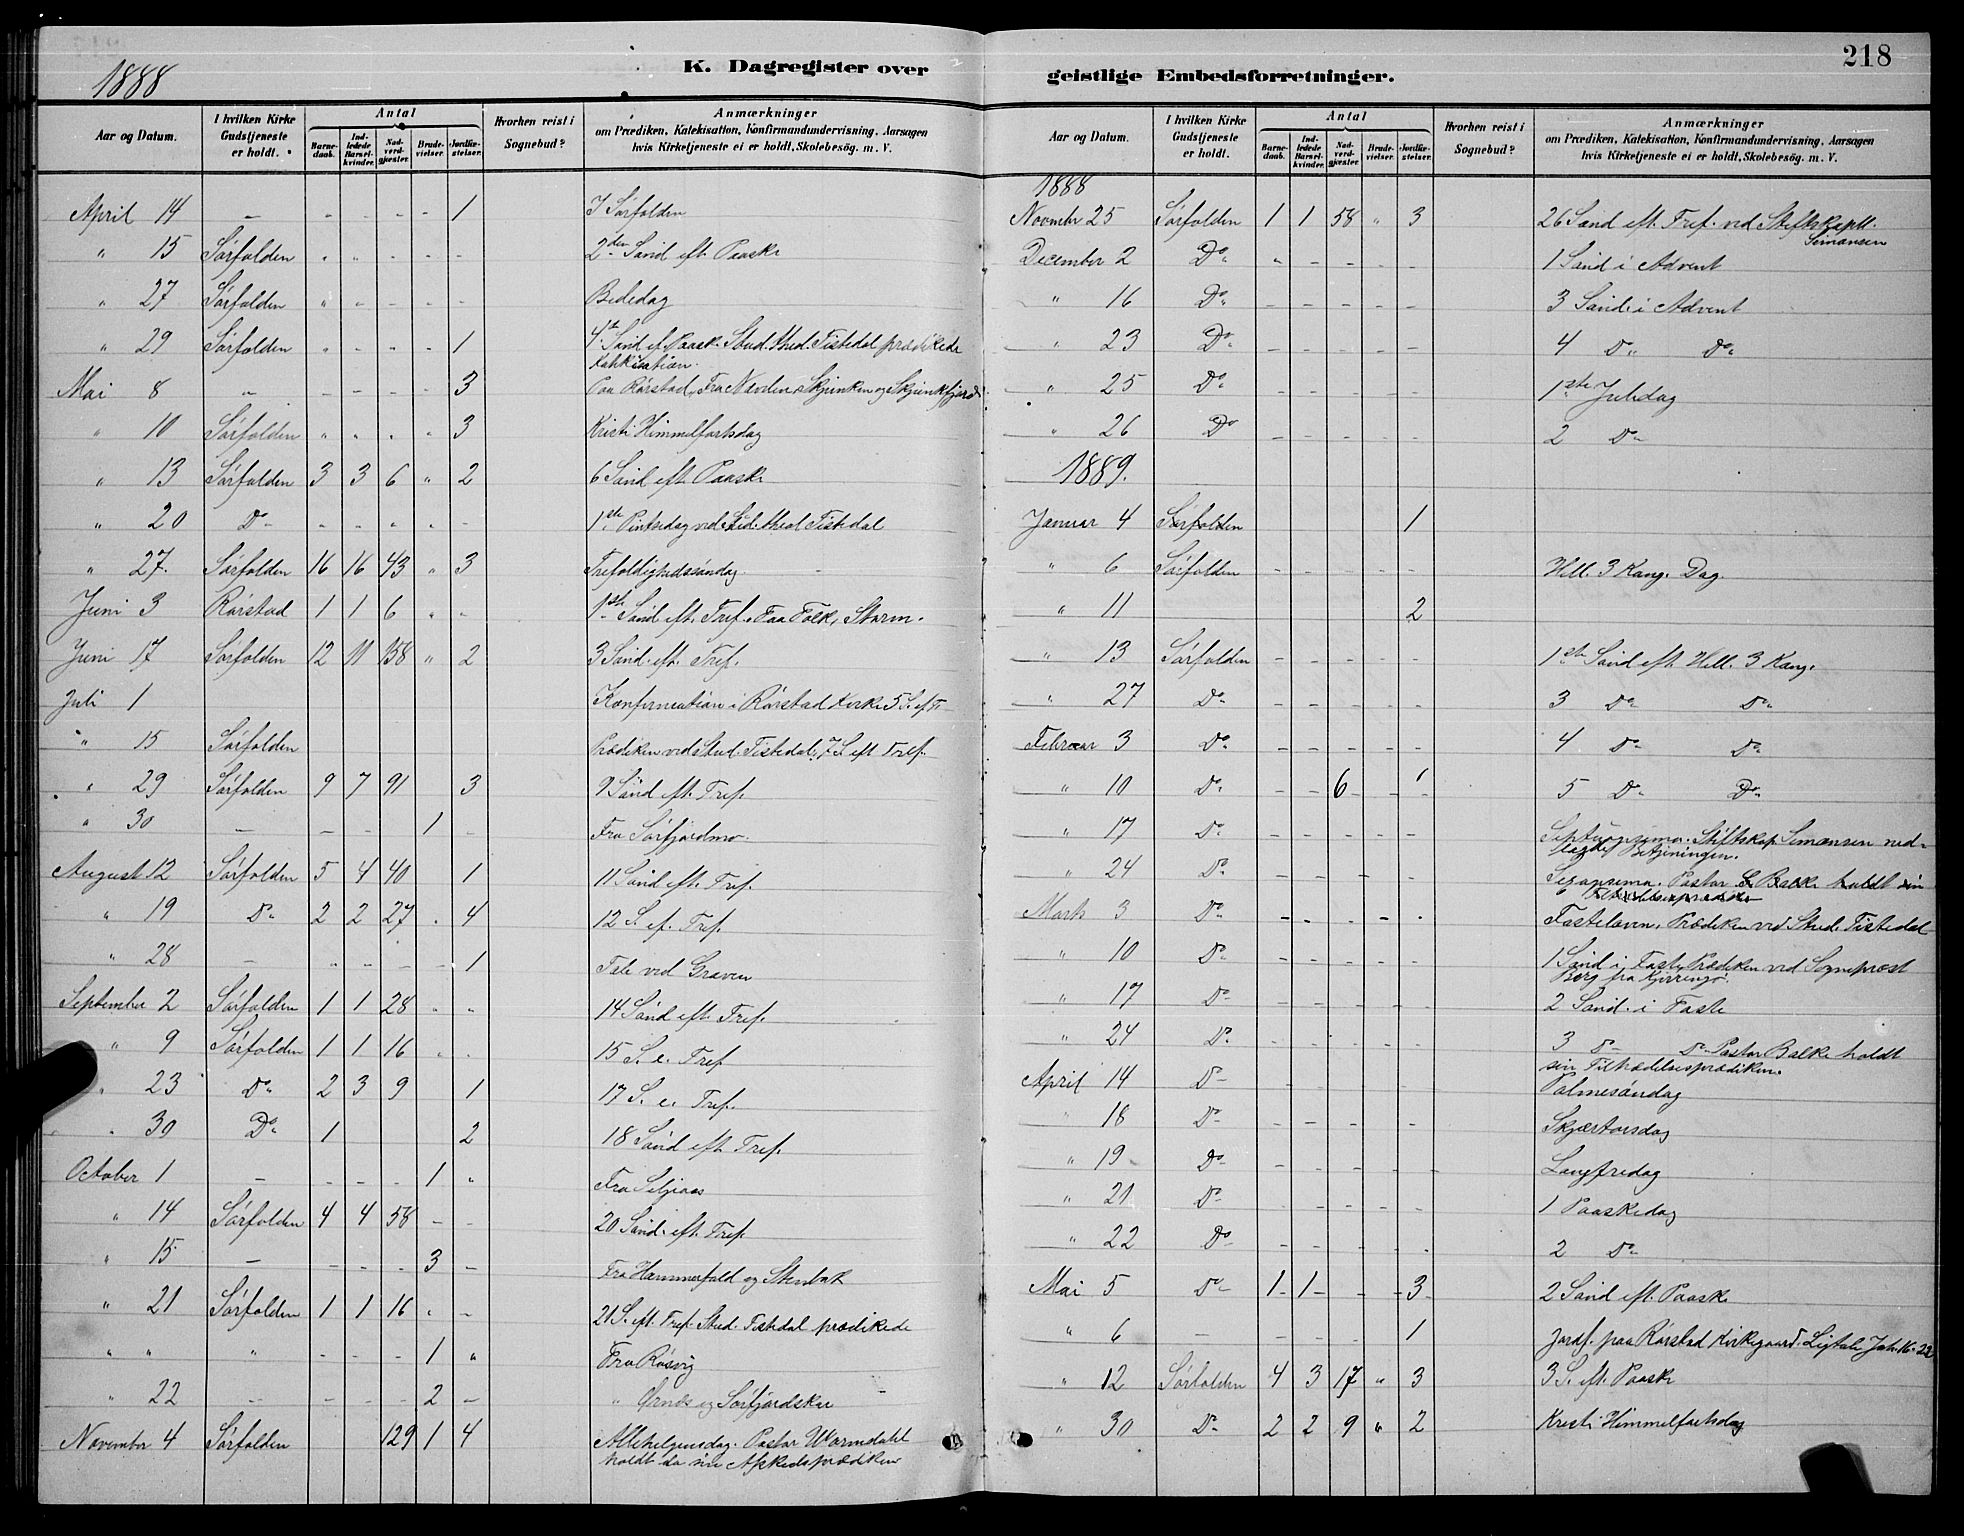 218
K. Dagregister over geistlige Embedsforretninger.
1888
Aar og Datum.
I hvilken Kirke Gudstjeneste er holdt.
Antal
Barnedaab.
Indledede Barselkvinder.
Nadverdgjæster.
Brudevielser.
Jordfæstelser.
Hvorhen reist i Sognebud?
Anmærkninger
om Prædiken, Katekisation, Konfirmandundervisning, Aarsagen
hvis Kirketjeneste ei er holdt, Skolebesög. m. V.
April 14 – - - - - 1 I Sørfolden
" 15 Sørfolden - - - - - 2den Sønd eft. Paaske
" 27 Sørfolden " - - - - Bededag
" 29 Sørfolden - - - - 1 4de Sønd ef. Paask. Stud. theol. Tistedal prædikede
Katekisation.
Mai 8 " - - - - 3 Paa Rørstad, Fra Nevelen, Skjunken og Skjunkfjord
" 10 Sørfolden " " " " 3 Kristi Himmelfartsdag
" 13 Sørfolden 3 3 6 " 2 6 Sønd eft. Paaske
" 20 Do - - - - - 1ste Pintsedag ved Stud. theol Tistedal
" 27. Sørfolden 16 16 43 " 3 Trefoldighedssøndag.
Juni 3 Rørstad 1 1 6 " - 1ste Sønd eft. Tref. Faa Folk, Storm.
Juni 17 Sørfolden 12 11 158 " 2 3 Sønd. eft. Tref.
Juli 1 Konfirmation i Rørstad Kirke 5 S. ef T
" 15 Sørfolden Prædiken ved Stud. Tistedal, 7 S eft Tref.
" 29 Sørfolden 9 7 91 3 9 Sønd eft. Tref.
" 30 – – - 1 - Fra Sørfjordmo.
August 12 Sørfolden 5 4 40 1 11 Sønd eft. Tref.
" 19 Do 2 2 27 . 4 12 S. ef. Tref.
" 28 – - - - - 1 Tale ved Graven
September 2 Sørfolden 1 1 28 " " 14 Sønd eft. Tref.
" 9 Sørfolden 1 1 16 . . 15 S. e. Tref
" 23 Do 2 3 9 1 17 S. e. Tref.
" 30 Do 1 2 18 Sønd eft. Tref.
October 1 – - - - 1 " Fra Seljeaas
" 14 Sørfolden 4 4 58 – - 20 Sønd. eft. Tref.
" 15 – - - - 3 – Fra Hammerfald og Stenbak
" 21 Sørfolden 1 1 16 - – 21 S. eft. Tref. Stud. Tistedal prædikede
" " " - - - 1 " Fra Røsvig
" 22 – – - - 2 – " Ørnes og Sørfjordskar
November 4 Sørfolden 129 1 4 Allehelgensdag. Pastor Warmdahl
holdt da sin Afskedsprædiken
Aar og Datum.
I hvilken Kirke Gudstjeneste er holdt.
Antal
Barnedaab.
Indledede Barselkvinder.
Nadverdgjæster.
Brudevielser.
Jordfæstelser.
Hvorhen reist i Sognebud?
Anmærkninger
om Prædiken, Katekisation, Konfirmandundervisning, Aarsagen
hvis Kirketjeneste ei er holdt, Skolebesög. m. V.
1888
Novmber 25 Sørfolden 1 1 58 " 3 26 Sønd eft. Tref. ved Stiftskapll.
Simonsen
December 2 Do - - - - - 1 Sønd i Advent
" 16 Do - - - - - 3 Sønd. i Advent
" 23 Do - - - - - 4 Do Do
" 25 Do - - - - - 1ste Juledag
" 26 Do - - - - - 2 Do
1889.
Januar 4 Sørfolden 1
" 6 Sørfolden - - - - - Hell. 3 Kong. Dag.
" 11 2
" 13 Sørfolden - - - - - 1ste Sønd eft Hell. 3 Kong.
" 27 Do - - - - - 3 Do Do
Februar 3 Do - - - - - 4 Do Do
" 10 Do - - 6 - 1 5 Do Do
" 17 Do - - - - - Septuagesima. Stiftskap. Simonsen ned-
lagde Betjeningen.
" 24 Do - - - - - Sexagesima. Pastor Balke holdt sin
Tiltrædelsesprædiken
Marts 3 Do - - - - - Fastelavn. Prædiken ved Stud. Tistedal
" 10 Do - - - - - 1 Sønd i Faste Prædiken ved Sogneprest
Berg fra Kjerringø.
" 17 Do - - - - - 2 Sønd. i Faste
" 24 Do - - - - - 3 Do Do Pastor Balke holdt
sin Tiltrædelsesprædiken.
April 14 Do - - - - - Palmesøndag
" 18 Do - - - - - Skjærtorsdag
" 19 Do - - - - - Langfredag
" 21 Do - - - - - 1 Paaskedag
" 22 Do - - - - - 2 Do
Mai 5 Do 1 1 - - 3 2 Sønd eft. Paaske
" 6 – - - - - 1 Jordf. paa Rørstad Kirkegaard. Ligtale Joh. 16-22
" 12 Sørfolden 4 3 17 " 3 3 S. eft. Paaske
" 30 Do 2 2 9 " 2 Kristi Himmelfartsdag